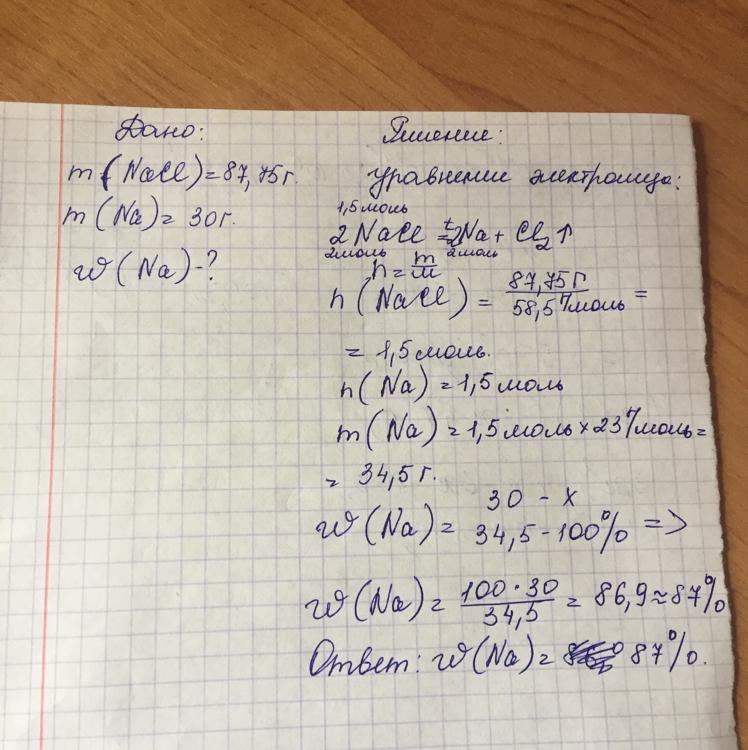 Дано:
m(NaCl)=87,75г.
m(Na)=30г.
ω(Na)-?
Решение:
уравнение электролиза:
1,5моль
2NaCl =2Na+Cl₂↑
2моль 2моль
n=m/M
n(NaCl)=87,75г/58,5г/моль=
=1,5моль.
n(Na)=1,5моль
m(Na)=1,5моль×23г/моль=
=34,5г.
30-x
ω(Na)= 34,5-100% =>
ω(Na)=100·30/34,5=86,9≈87%
Ответ: ω(Na)= 87%.